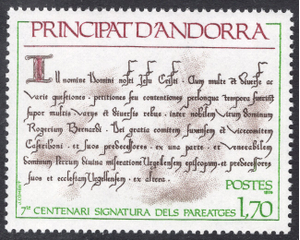 PRINCIPAT D'ANDORRA
In nomine Domini nostri Jesu Cristi. Cum multe et diverse ac
varie questiones, petitiones seu contentiones prolonque tempora fuerint
super multis variis et diversis rebus, inter nobilem virum dominum
Rogerium Bernardi, Dei gratia comitem et Vicecomitem
Castriboni, et suos predecessores ex una parte, et venerabilem
dominum Petrum divina miseratione Urgellensem episcopum, et predecessores
suos et ecclesiam Urgellensem, ex altera.
POSTES
1978
7è CENTENARI SIGNATURA DELS PAREATGES
1,70